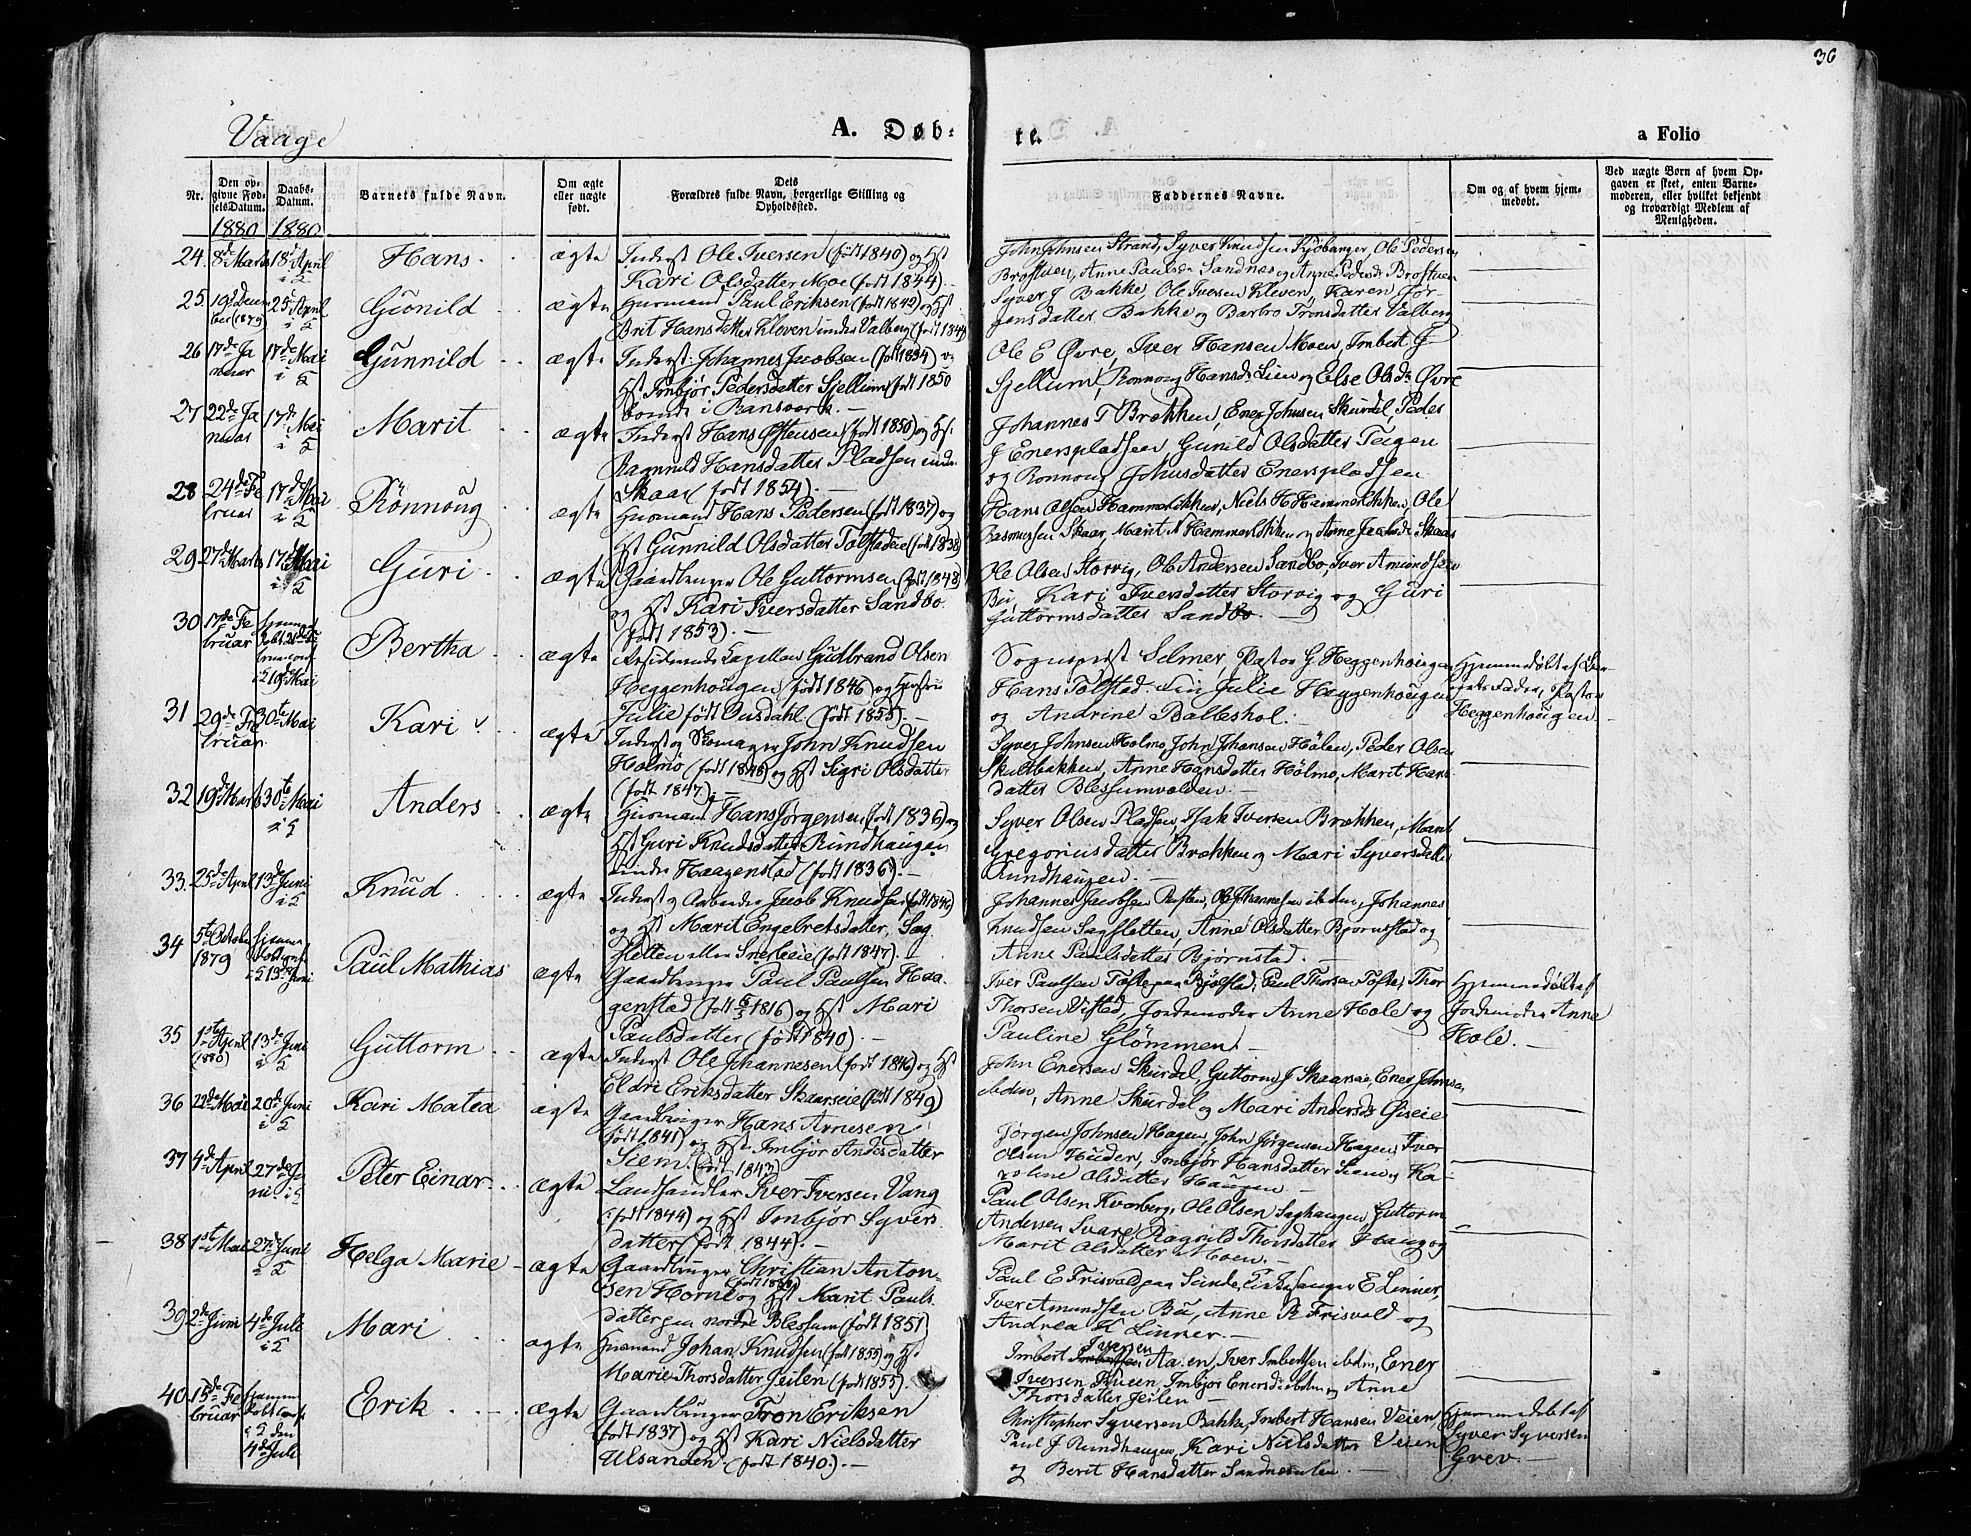 36
Vaage
A. Døb-
te.
a Folio
Nr.
Den opgivne FødselsDatum.
Daabs-Datum.
Barnets fulde Navn.
Om ægte eller uægte født.
Dets Forældres fulde Navn, borgerlige Stilling og Opholdssted.
Faddernes Navne.
Om og af hvem hjemmedøbt.
Ved uægte Børn af hvem Opgaven er skeet, enten Barnemoderen, eller hvilket bekjendt og troværdigt Medlem af Menigheden.
1880 1880
24. 8de Marts 18de April Hans ægte Inderst Ole Iversen (født 1840) og Hst
Kari Olsdatter Moe (født 1844).
John Johnsen Strand, Syver Knudsen, Ole Pedersen
Brøstuen, Anne Paulsdr Sandnes og Anne Pedersdr Brøstuen
25. 19de December (1879) 25de April i 5 Gunild ægte Husmand Paul Eriksen (født 1842) og Hst
Brit Hansdatter Kleven under Valberg (født 1844)
Syver J Bakke, Ole Iversen Kleven, Karen Jør
gensdatter Bakke og Barbro Tronsdatter Valberg
26 17de Januar 17de Mai i 5 Gunnild ægte Inderst Johannes Jacobsen (født 1834) og
Hst Imbjør Pedersdatter Sjellum (født 1850
boende i
Ole E Øvre, Iver Hansen Moen, Imbert J
Sjellum, Rønnoug Hansdr Lien og Else Olsdr Øvre
27 22de Januar 17de Mai i 5 Marit ægte Inderst Hans Østensen (født 1850) og Hst
Ragnild Hansdatter Pladsen under
Skaar (født 1854).
Johannes T Brækken, Ener Johnsen Skurdal, Peder
J Enerspladsen Gunild Olsdatter Teigen
og Rønnoug Johnsdatter Enerspladsen
28 24de Februar 17de Mai i 5 Rønnoug ægte Husmand Hans Pedersen (født 1837) og
Hst Gunnild Olsdatter Tolstadeie (født 1838)
Hans Olsen Hammerløkken, Niels H Hammerløkken, Ole
Rasmussen Skaar, Marit N Hammerløkken og Anne Jacobsdr Skaar
29 27de Marts 17de Mai i 5 Guri ægte Gaardbruger Ole Guttormsen (født 1848)
og Hst Kari Iversdatter Sandbo.
(født 1853).
Ole Olsen Storvig, Ole Andersen Sandbo, Iver Amundsen
Bu, Kari Iversdatter Storvig og Guri
Guttormsdatter Sandbo.
30 17de Februar Bertha ægte Residerende Capellan Gudbrand Olsen
Heggenhougen (født 1846) og Hustru
Julie født Ousdahl (født 1855).
Sogneprest Selmer, Pastor G. Heggenhougen
Hans Tolstad. Julie Heggenhougen
og Andrine Balleshol.
Hjemmedøbt af Bar
nets Fader, Pastor
Heggenhougen.
31 29de Februar 30te Mai Kari ægte Inderst og Skomager John Knudsen
Holmo (født 1848) og Hst Sigri Olsdatter
(født 1847).
Syver Johnsen Holmo, John Johansen Hølen, Peder Olsen
Skultbakken, Anne Hansdatter Holmo, Marit Hans
datter Blessumvolden.
32 19de Marts 30te Mai i 5 Anders ægte Husmand Hans Jørgensen (født 1836) og
Hst Guri Knudsdatter Rundhaugen
under Haagenstad (født 1836).
Syver Olsen Pladsen, Isak Iversen Brækken, Marit
Gregoriusdatter Brækken og Mari Syversdatter
Rundhaugen.
33. 25de April 13de Juni i 5 Knud ægte Inderst og Arbeider Jacob Knudsen (født 1846)
og Hst Marit Engebretsdatter, Sag
fletten (født 1847).
Johannes Jacobsen, Ole Johannesen ibidem, Johannes
Knudsen Sagfletten, Anne Olsdatter Bjørnstad og
Anne Paulsdatter Bjørnstad.
34 5te October 1879 13de Juni Paul Mathias ægte Gaardbruger Paul Paulsen Haa
genstad (født 1816) og Hst Mari
Paulsdatter (født 1840).
Iver Paulsen Tofte paa Bjølstad, Paul Thorsen Tofte, Thor
Thorsen Ulstad, Jordemoder Anne Hole og
Pauline Glømmen.
Hjemmedøbt af
Jordemoder Anne
Hole.
35 1ste April (1880) 13de Juni i 5 Guttorm ægte Inderst Ole Johannesen (født 1846) og Hst
Eldri Eriksdatter Skaarseie (født 1849)
John Enersen Skurdal, Guttorm J Skaarseie, Ener Johnsen
ibidm, Anne Skurdal og Mari Andersdr
36 22de Mai 20de Juni i 5 Kari Matea ægte Gaardbruger Hans Arnesen
født 1841) og Hst Imbjør Andersdatter
Siem. (født 1843)
Jørgen Johnsen Hagen, John Jørgensen Hagen, Iver
Olsen, Imbjør Hansdatter Siem og Ka-
roline Olsdatter Haugen
37 4de April 27de Juni i 5 Peter Einar ægte Landhandler Iver Iversen Vang
(født 1844) og Hst Imbjør Syvers
datter (født 1844).
Paul Olsen Kvarberg, Ole Olsen Saghaugen, Guttorm
Andersen Svare, Ragnild Thorsdatter Haug og
Marit Olsdatter Moen.
38 1ste Mai 27de Juni i 5 Helga Marie ægte Gaardbruger Christian Anton-
sen Horne og Hst Marit Pauls-
datter paa nordre Blessum (født 1851)
Paul E Frisvold paa Sunde, Kirkesanger E Linner,
Iver Amundsen Bu, Anne R Frisvold og
Andrea K Linner.
39 2de Juni 4de Juli i 5 Mari ægte Husmand Johan Knudsen (født 1855) og Hst
Marie Thorsdatter Jeilen (født 1855).
Imbert Iversen Aaen, Iver Imbertsen ibdm, Ener
Iversen, Imbjør Enersdr ibdm og Anne
Thorsdatter Jeilen
40 15de Februar 4de Juli Erik ægte Gaardbruger Tron Eriksen
født 1837) og Hst Kari Nielsdatter
Ulsanden (født 1840).
Christopher Syversen Bakke, Imbert Hansen Veien,
Paul J Rundhaugen, Kari Nielsdatter Veien
og Berit Hansdatter
Hjemmedøbt af
Syver Syversen
Grev.